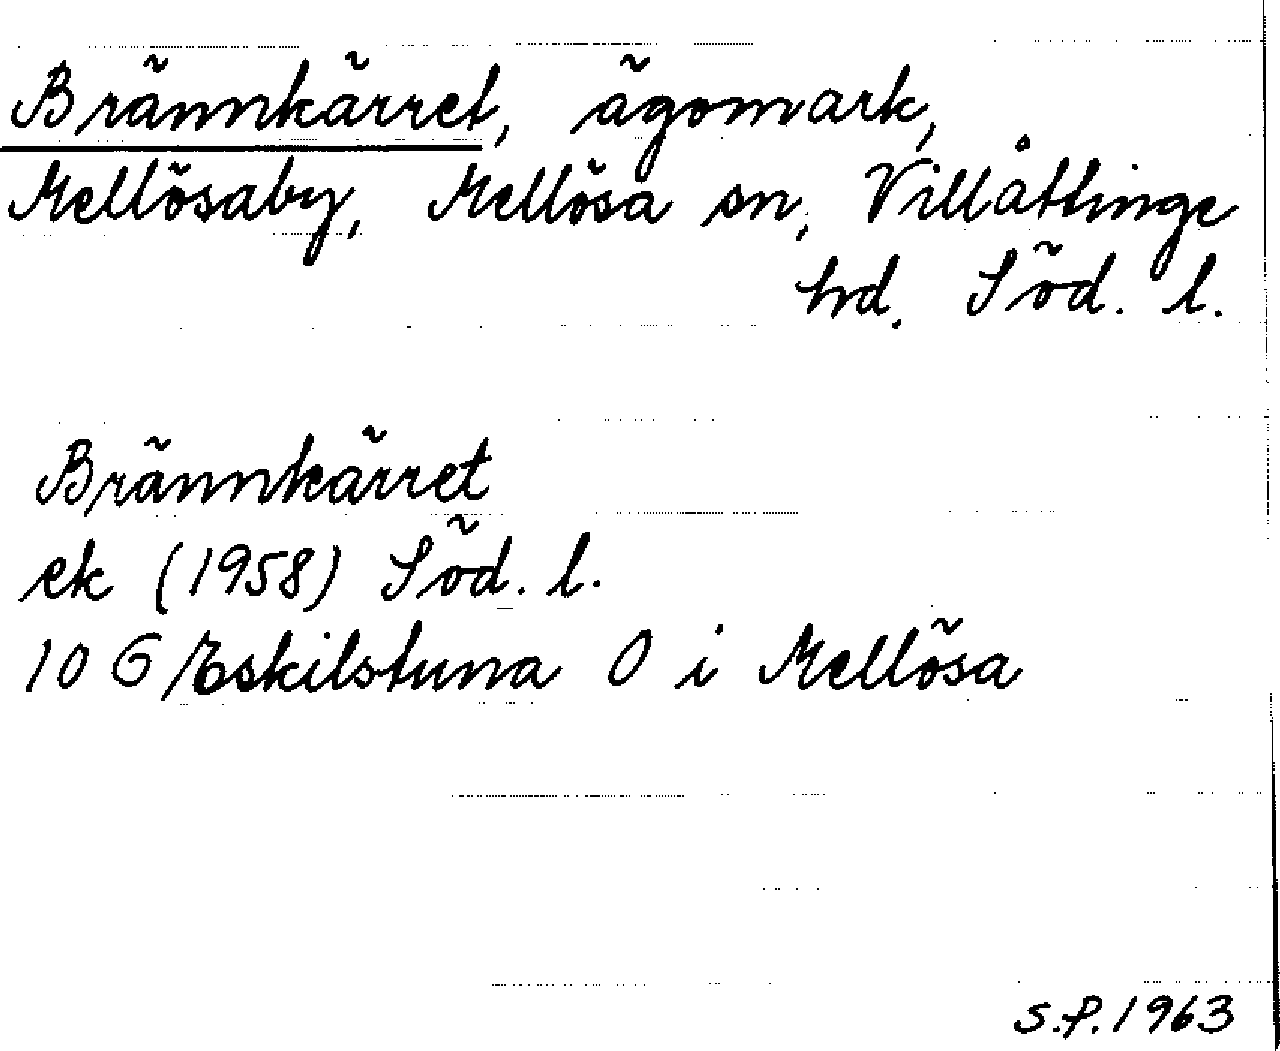 Brännkärret, ägomark,
Mellösaby, Mellösa sn, Villåttinge
hd. Söd. l.
Brännkärret
ek (1958) Söd. l.
10 G/Eskilstuna O i Mellösa
S.P. 1963